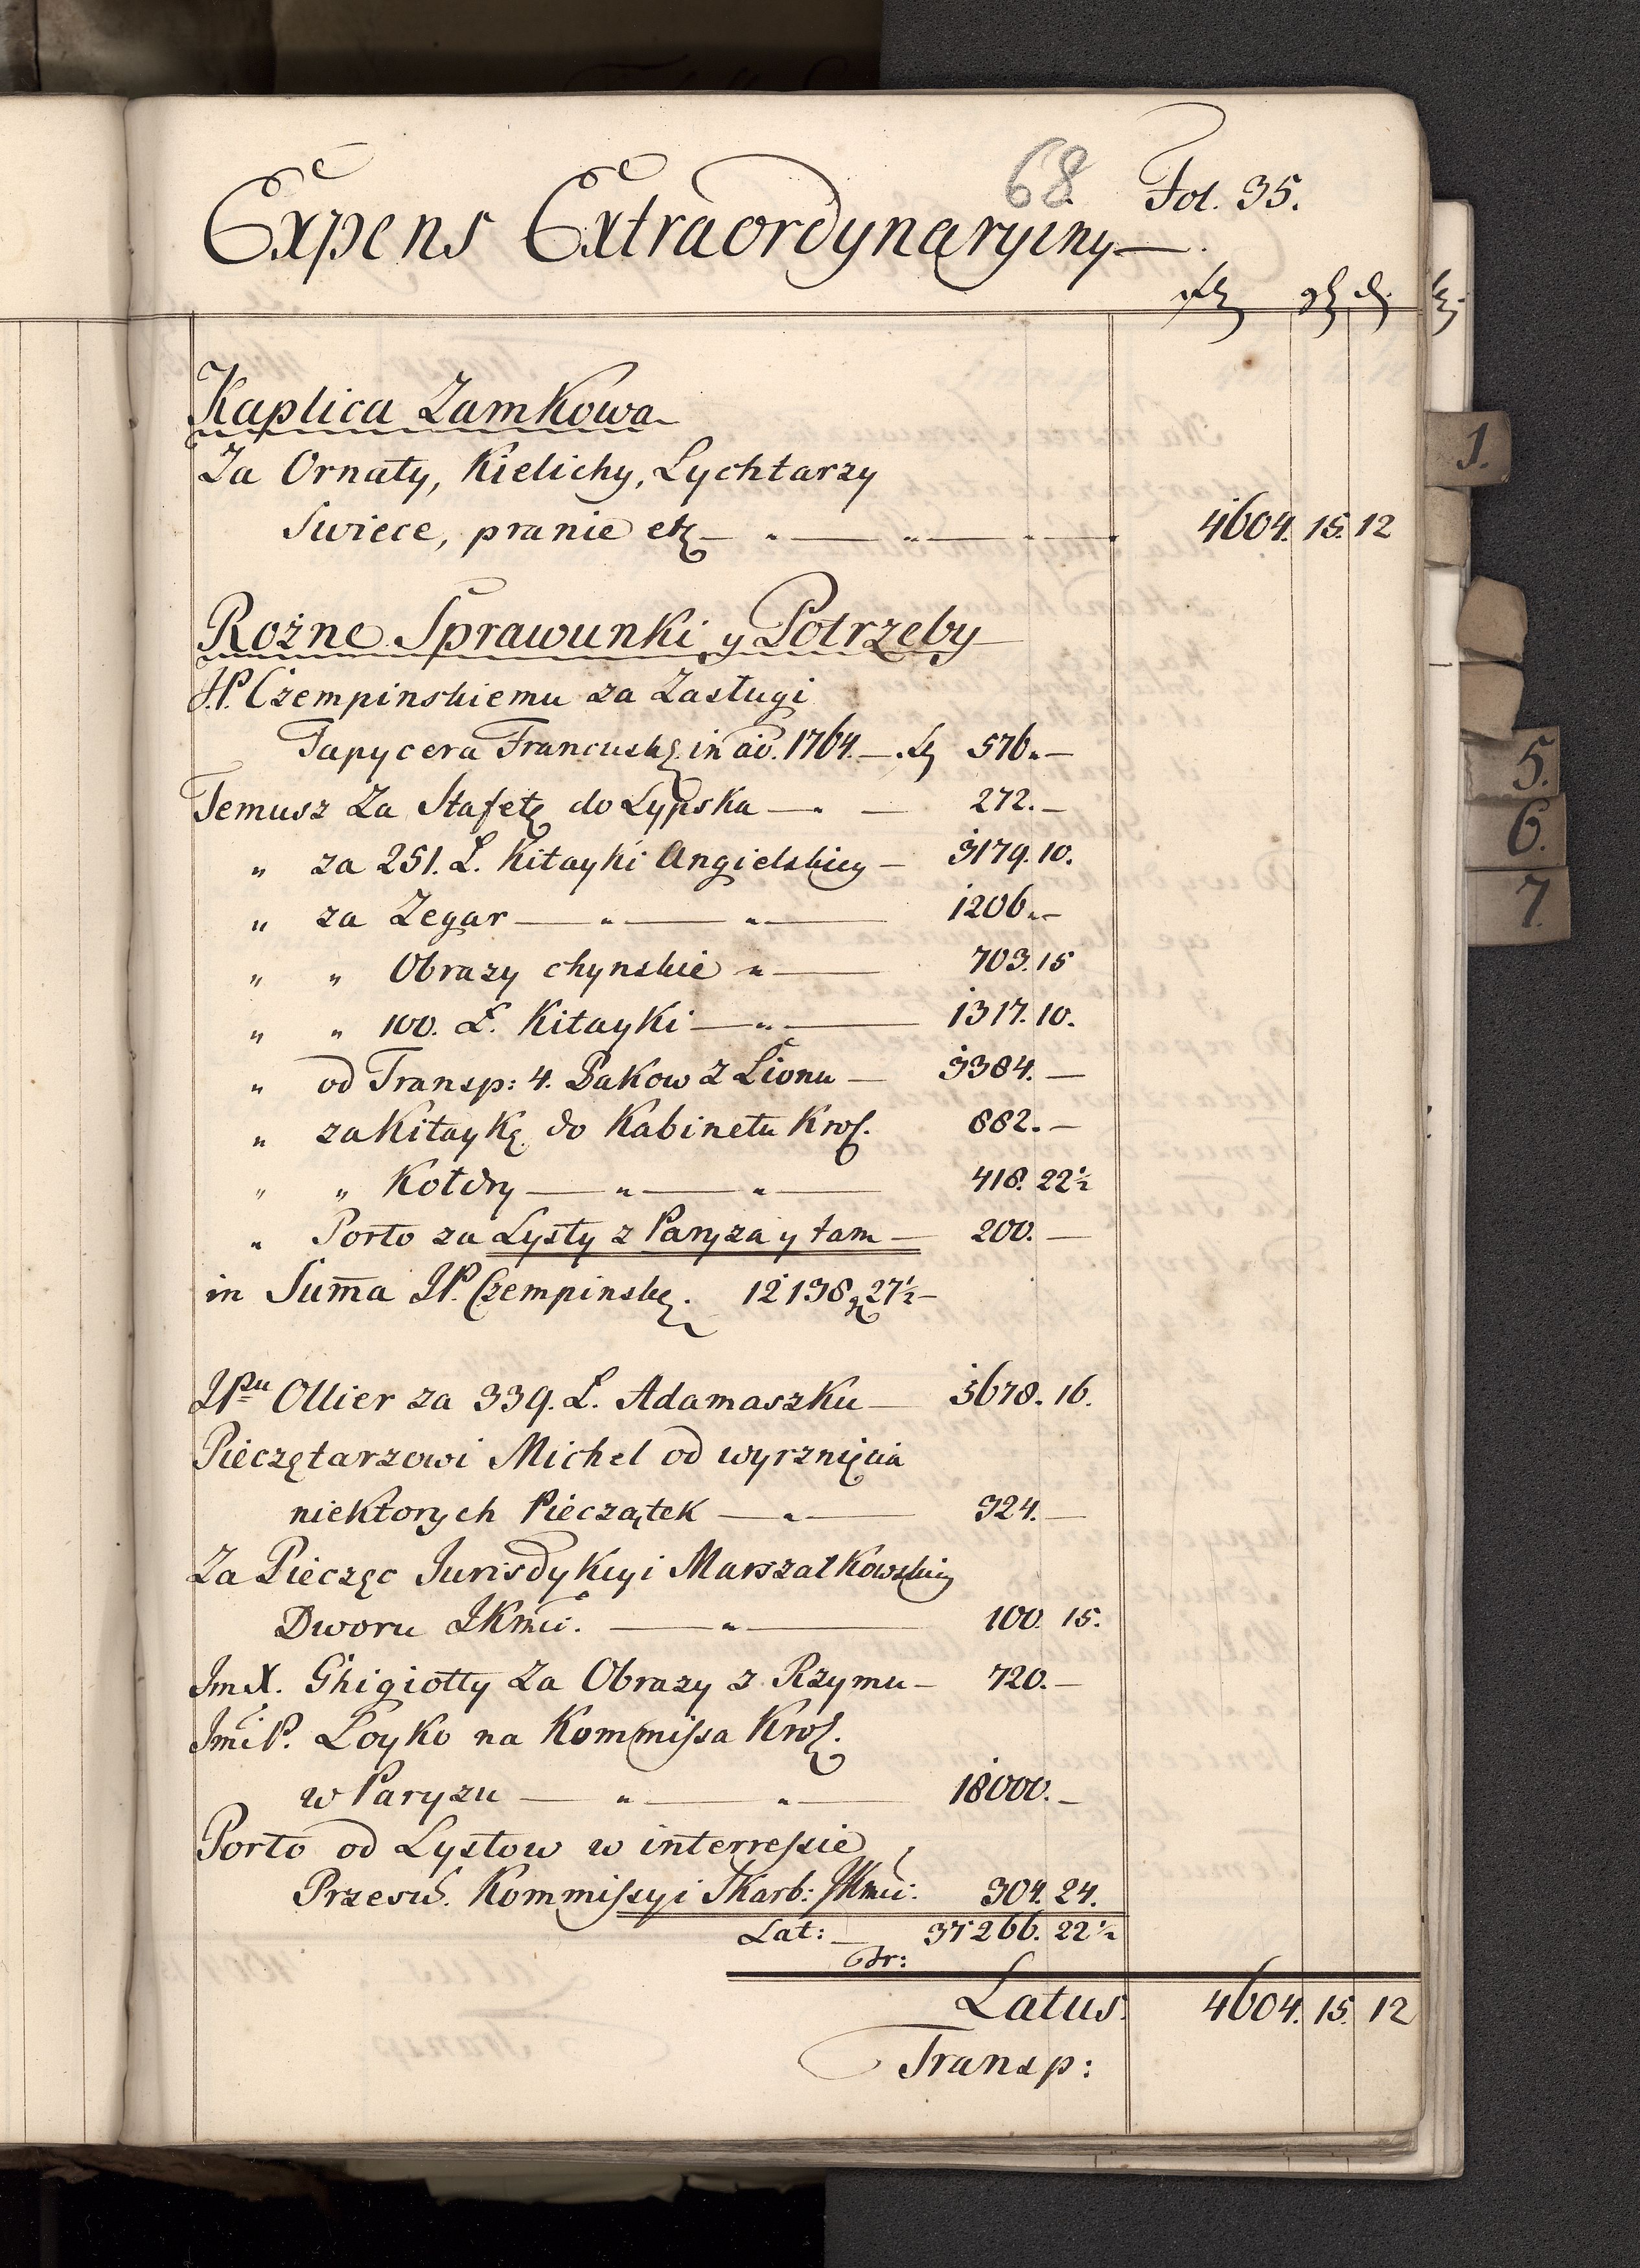 68.
Fol. 35.
Expens Extraordynaryiny
Kaplica Zamkowa
Za Ornaty, Kielichy, Lychtarzy
Swiece, pranie etz — " — " — " — 4604. 15. 12
Rożne Sprawunki y Potrzeby
J.P. Czempinskiemu za Zasługi
Tapycera Francuskg. in aō. 1764. — 576. —
Temusz Za Stafetę do Lypska — " — 272. —
" za 251. Ł. Kitayki Angielskiey — 3179. 10.
" za Zegar — " — " — 1206. —
" " Obrazy chynskie " — 703. 15
" " 100. Ł. Kitayki — " — 1317. 10.
" od Transp: 4. Pakow z Lionu — 3384. —
" za Kitaykę do Kabinetu Krol. 882. —
" " Kołdry — " — " — 418. 22½
" Porto za Lysty z Paryza y tam — 200. —
in Sum̄a JP. Czempinskg. 12138 g 27½ —
JPnu Ollier za 339. Ł. Adamaszku — 5678. 16.
Pieczętarzowi Michel od wyrznięcia
niektorych Pieczątek — " — 324. —
Za Pieczęc Jurisdykcyi Marszałkowskiey
Dworu JKmci. — " — 100. 15.
Jm X. Ghigiotty Za Obrazy z Rzymu — 720. —
Jmci P. Łoyko na Kommissa Krol.
w Paryzu — " — " — 18000. —
Porto od Lystow w interressie
Przesw. Kommissyi Skarb: JKmci: 304. 24.
Lat: — 37266. 22½
Tr:
Latus. 4604. 15. 12
Transp:
1.
5.
6.
7.